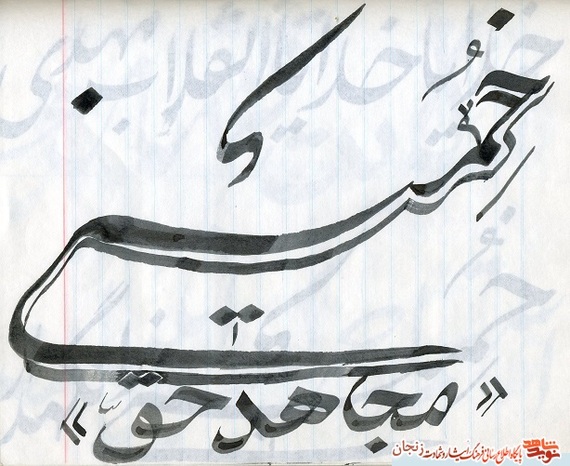 خدایا خدایا تا انقلاب مهدی
خمینی
«مجاهد حق»
نوید شاهد
پایگاه اطلاع رسانی فرهنگ ایثار و شهادت زنجان